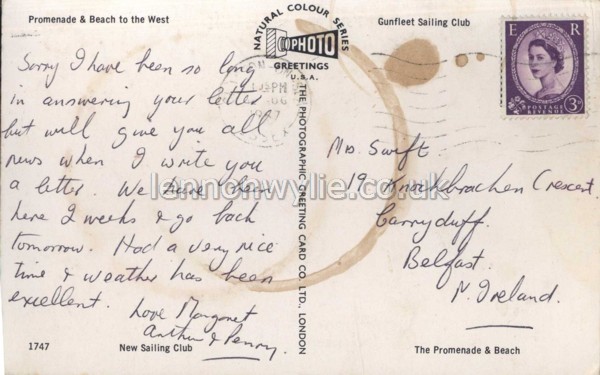 Promenade & Beach to the West
Gunfleet Sailing Club
NATURAL COLOUR SERIES
PHOTO
GREETINGS
U.S.A.
E R
POSTAGE
REVENUE
3D
PM
Sorry I have been so long
in answering your letter
but will give you all
news when I write you
a letter. We have been
here 2 weeks & go back
tomorrow. Had a very nice
time & weather has been
excellent.
Love Margaret
Arthur & Penny.
THE PHOTOGRAPHIC GREETING CARD CO. LTD., LONDON
Mrs. Swift.
19 Knockbracken Crescent.
Carryduff.
Belfast.
N. Ireland.
lennonwylie.co.uk
1747
New Sailing Club
The Promenade & Beach